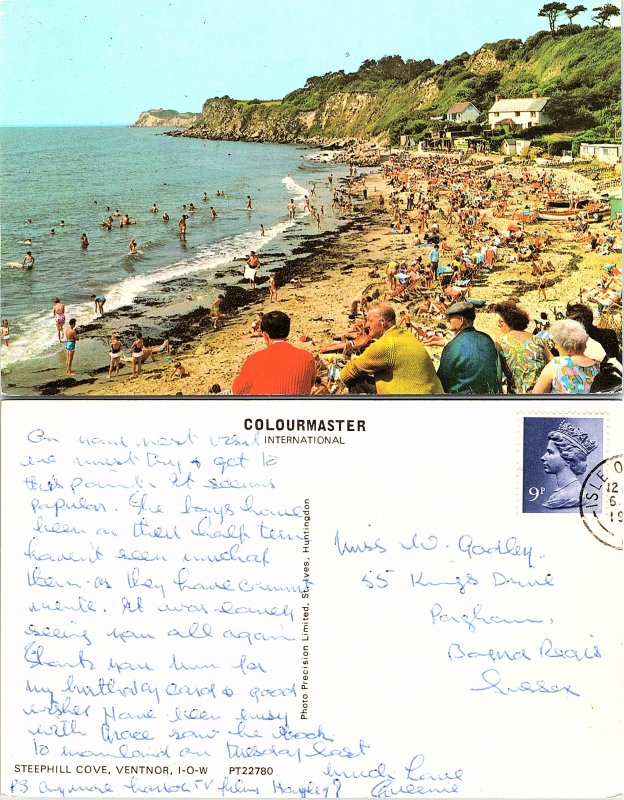 COLOURMASTER
INTERNATIONAL
9P
ISLE O
12
6
19
On your next visit
we must try & get to
this point. It seems
popular. The boys have
been on their half term
haven't seen much of
them as they have commit
ments. It was lovely
seeing you all again
Thank you for
my birthday card & good
wishes Have been busy
with Grace saw he
to mainland on Tuesday last
much love
Queenie
PS Any more TV films Hayley?
Photo Precision Limited, St. Ives, Huntingdon
Miss W. Godley.
55 King's Drive
Pagham,
Bognor Regis
Sussex
STEEPHILL COVE, VENTNOR, I-O-W PT22780